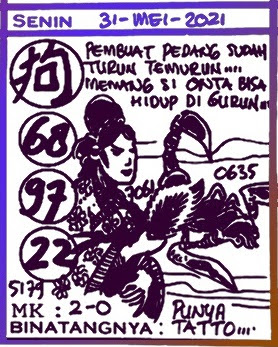 SENIN 31-MEI-2021
PEMBUAT PEDANG SUDAH
TURUN TEMURUN....
MEMANG SI ONTA BISA
HIDUP DI GURUN...
狗
68
97
22
0635
7061
5179
MK : 2-0
BINATANGNYA :
PUNYA
TATTO....